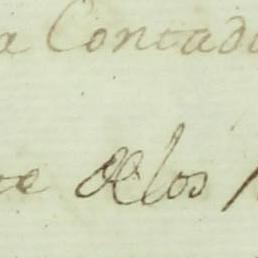 a Contad
te delos